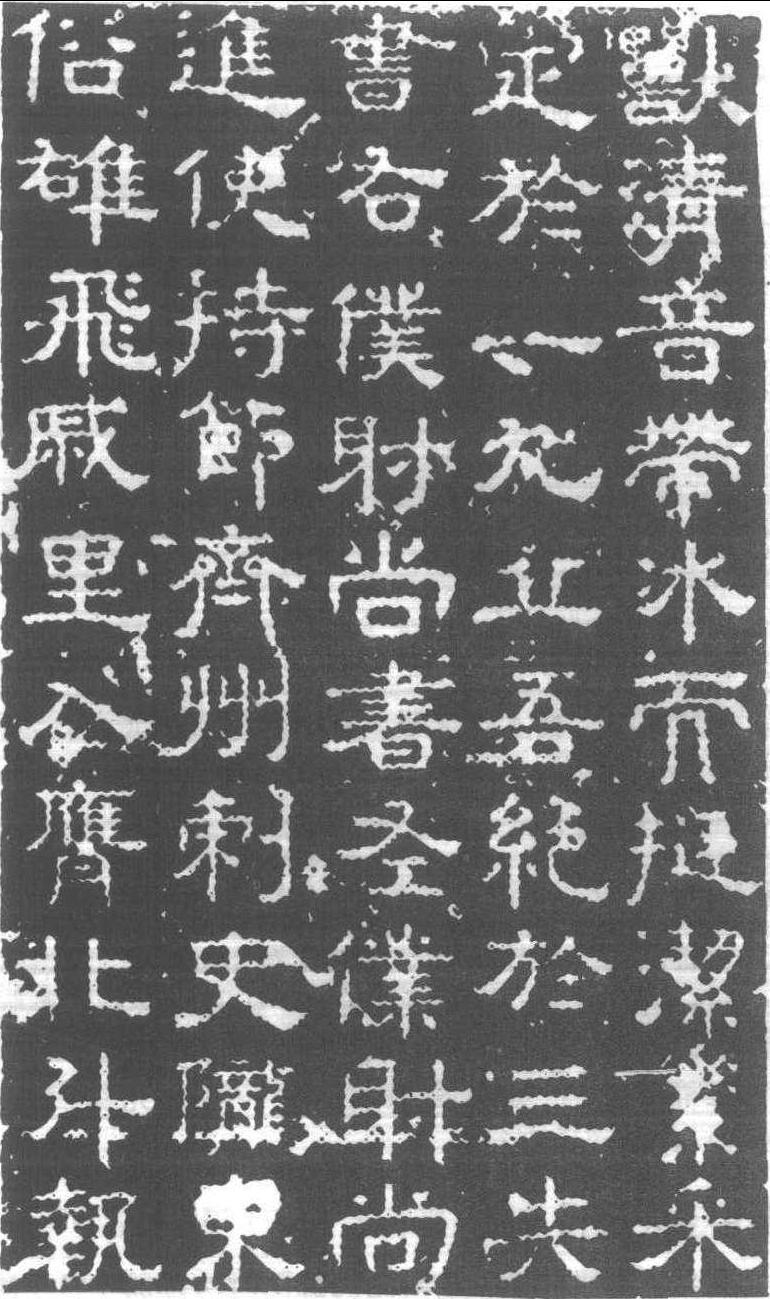 清音帶冰而挺潔
於一止吾絕於三夫
書右僕射尚書左僕射尚
進使持節齊州刺史隴
俗雄飛戚里令膺北斗執